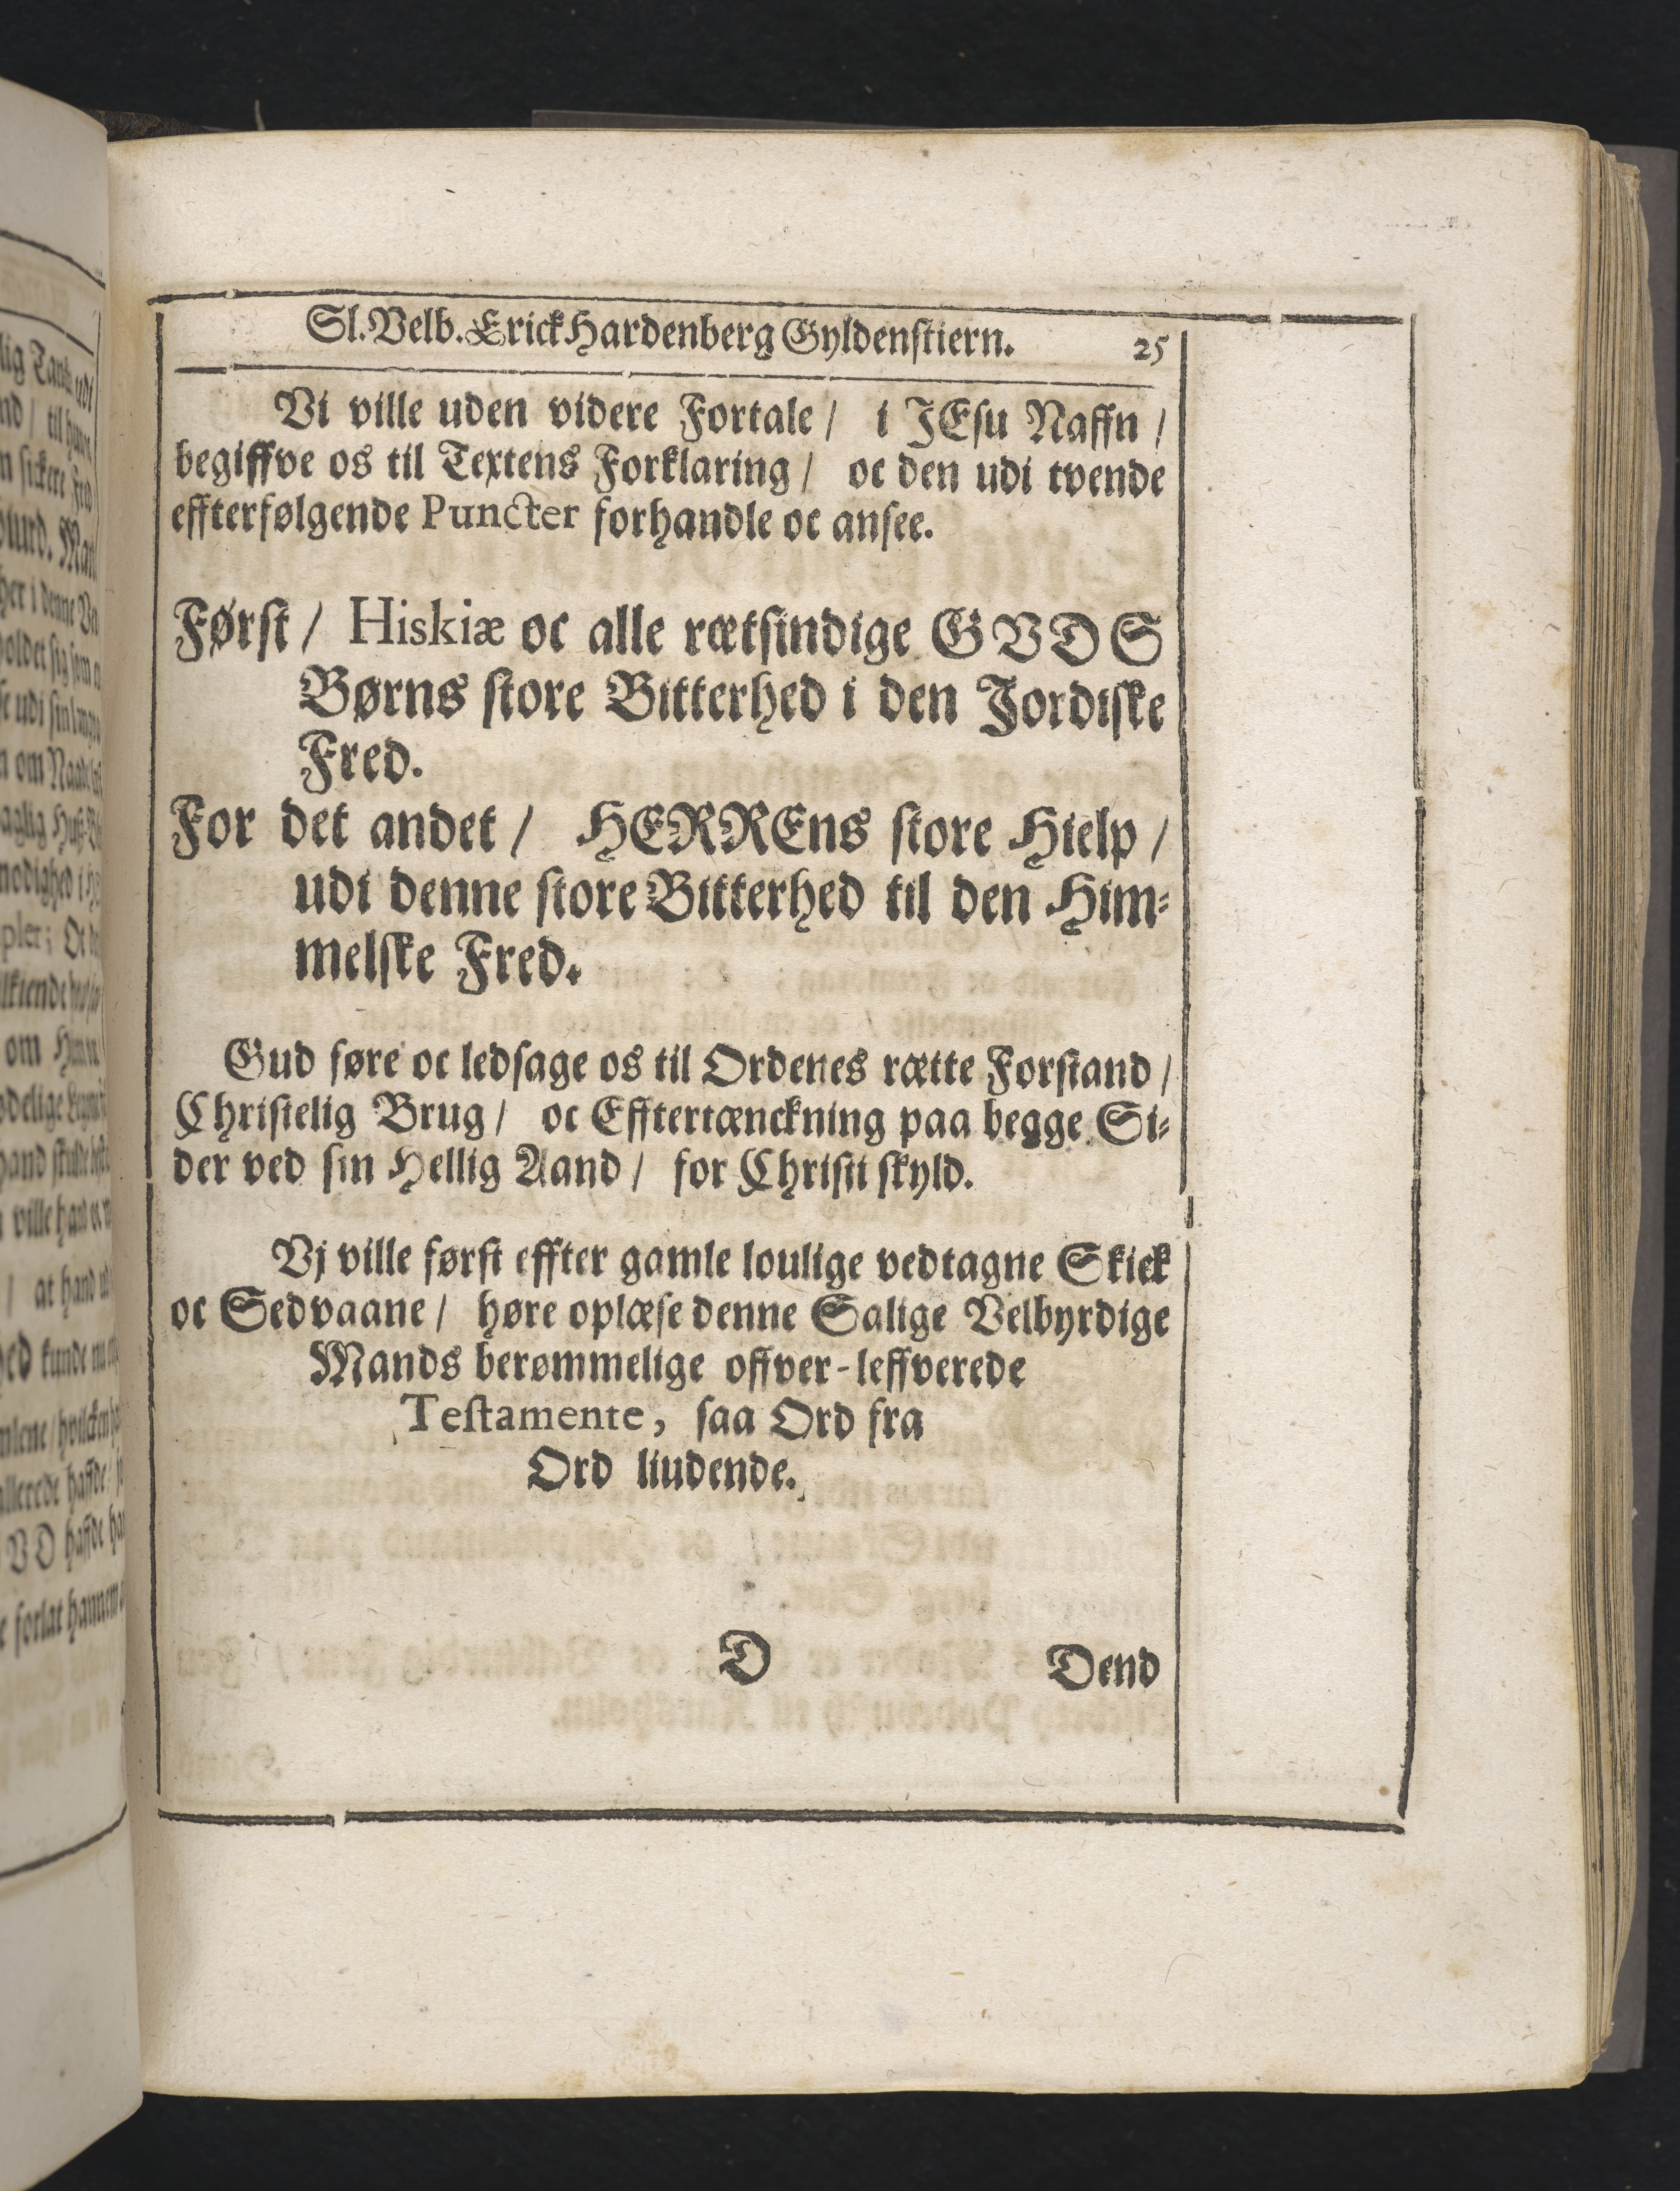 Sl. Velb. Erick Hardenberg Gyldenstiern. 25
Vi ville uden videre Fortale / i JEsu Naffn /
begiffve os til Textens Forklaring / oc den udi tvende
effterfølgende Puncter forhandle oc ansee.
Først / Hiskiæ oc alle rætsindige GVDS
Børns store Bitterhed i den Jordiske
Fred.
For det andet / HERREns store Hielp /
udi denne store Bitterhed til den Him-
melske Fred.
Gud føre oc ledsage os til Ordenes rætte Forstand /
Christelig Brug / oc Efftertænckning paa begge Si-
der ved sin Hellig Aand / for Christi skyld.
Vj ville først effter gamle loulige vedtagne Skick
oc Sedvaane / høre oplæse denne Salige Velbyrdige
Mands berømmelige offver-leffverede
Testamente, saa Ord fra
Ord liudende.
D Dend